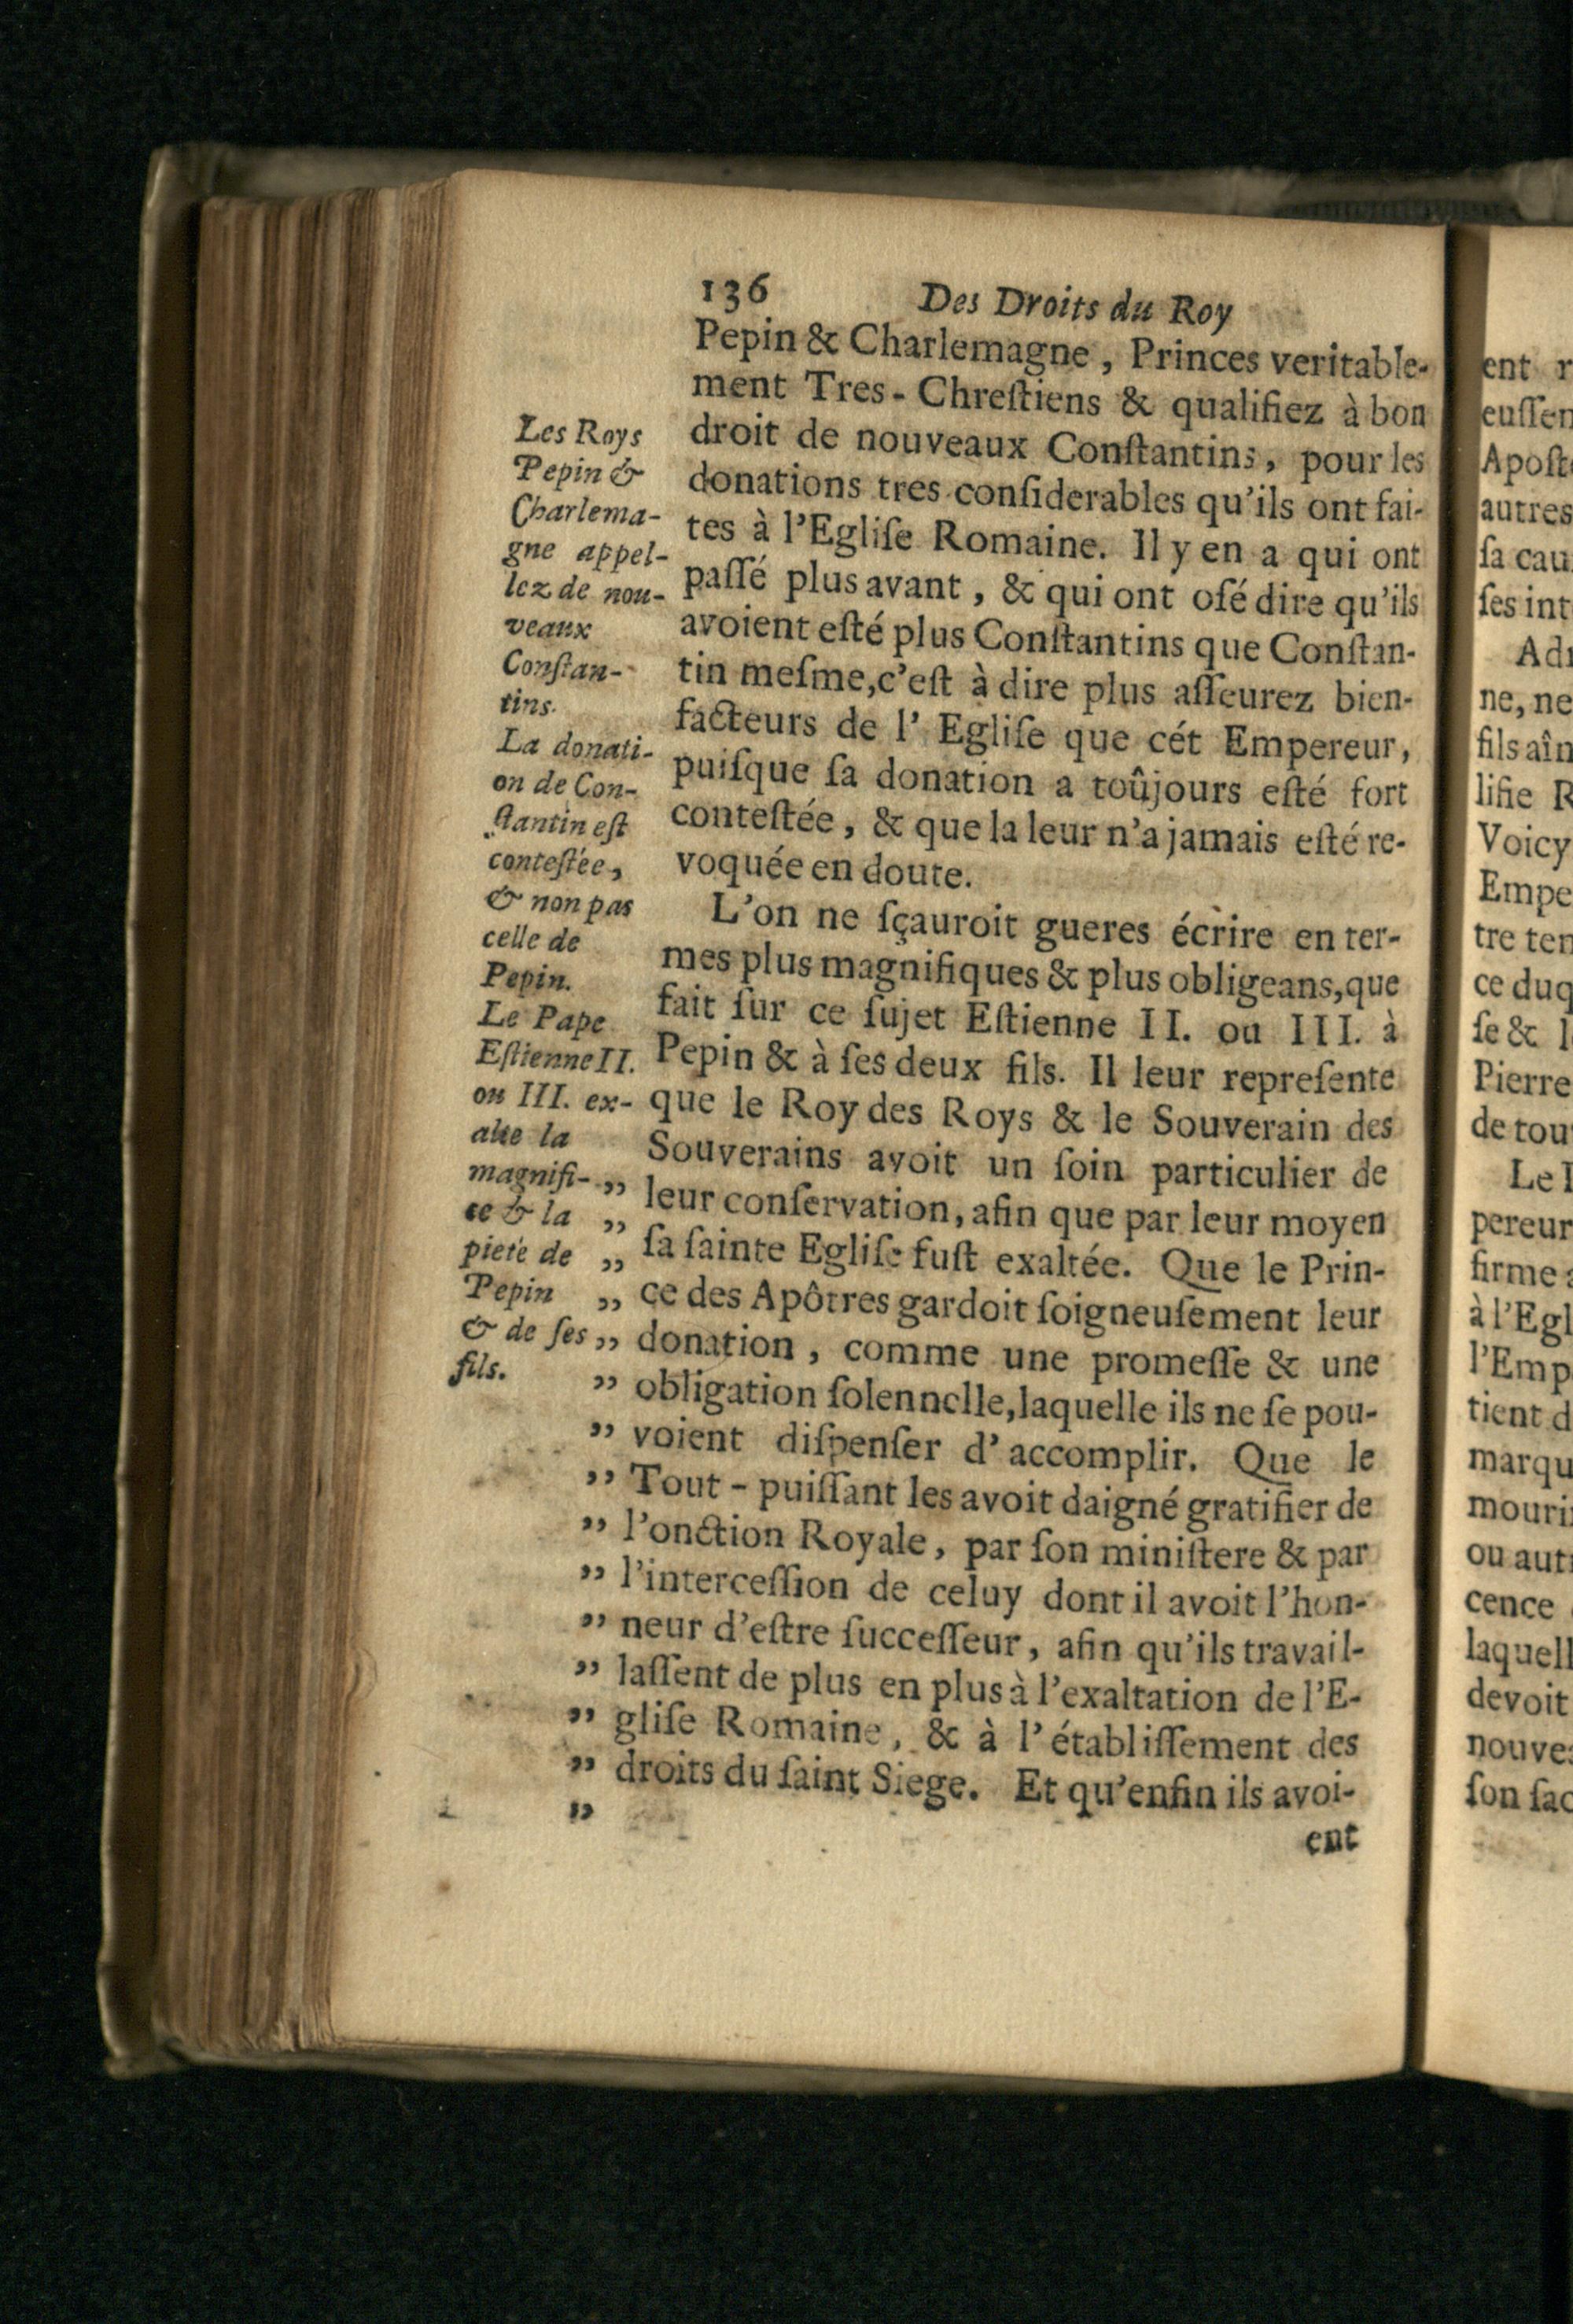 136 Des Droits du Roy
Pepin & Charlemagne, Princes veritable-
ment Tres-Chreſtiens & qualifiez à bon
droit de nouveaux Conſtantins, pour les
donations tres conſiderables qu'ils ont fai-
tes à l'Egliſe Romaine. Il y en a qui ont
paſſé plus avant, & qui ont oſé dire qu'ils
avoient eſté plus Conſtantins que Conſtan-
tin meſme, c'eſt à dire plus aſſeurez bien-
facteurs de l' Egliſe que cét Empereur,
puiſque ſa donation a toûjours eſté fort
conteſtée, & que la leur n'a jamais eſté re-
voquée en doute.
L'on ne ſçauroit gueres écrire en ter-
mes plus magnifiques & plus obligeans, que
fait ſur ce ſujet Eſtienne II. ou III. à
Pepin & à ſes deux fils. Il leur repreſente
que le Roy des Roys & le Souverain des
Souverains avoit un ſoin particulier de
„ leur conſervation, afin que par leur moyen
„ ſa ſainte Egliſe fuſt exaltée. Que le Prin-
„ ce des Apôtres gardoit ſoigneuſement leur
„ donation, comme une promeſſe & une
„ obligation ſolennelle, laquelle ils ne ſe pou-
„ voient diſpenſer d' accomplir. Que le
„ Tout-puiſſant les avoit daigné gratifier de
„ l'onction Royale, par ſon miniſtere & par
„ l'interceſſion de celuy dont il avoit l'hon-
„ neur d'eſtre ſucceſſeur, afin qu'ils travail-
„ laſſent de plus en plus à l'exaltation de l'E-
„ gliſe Romaine, & à l' établiſſement des
„ droits du ſaint Siege. Et qu'enfin ils avoi-
„
ent
Les Roys
Pepin &
Charlema-
gne appel-
lez de nou-
veaux
Conſtan-
tins.
La donati-
on de Con-
ſtantin eſt
conteſtée,
& non pas
celle de
Pepin.
Le Pape
Eſtienne II.
ou III. ex-
alte la
magnifi-
ce & la
pieté de
Pepin
& de ſes
fils.
ent r
euſſen
Apoſt
autres
ſa cau
ſes int
Ad
ne, ne
fils aîn
lifie R
Voicy
Empe
tre ten
ce duq
ſe & l
Pierre
de tou
Le
pereur
firme
à l'Egl
l'Emp
tient d
marqu
mouri
ou aut
cence
laquell
devoit
nouve
ſon ſac